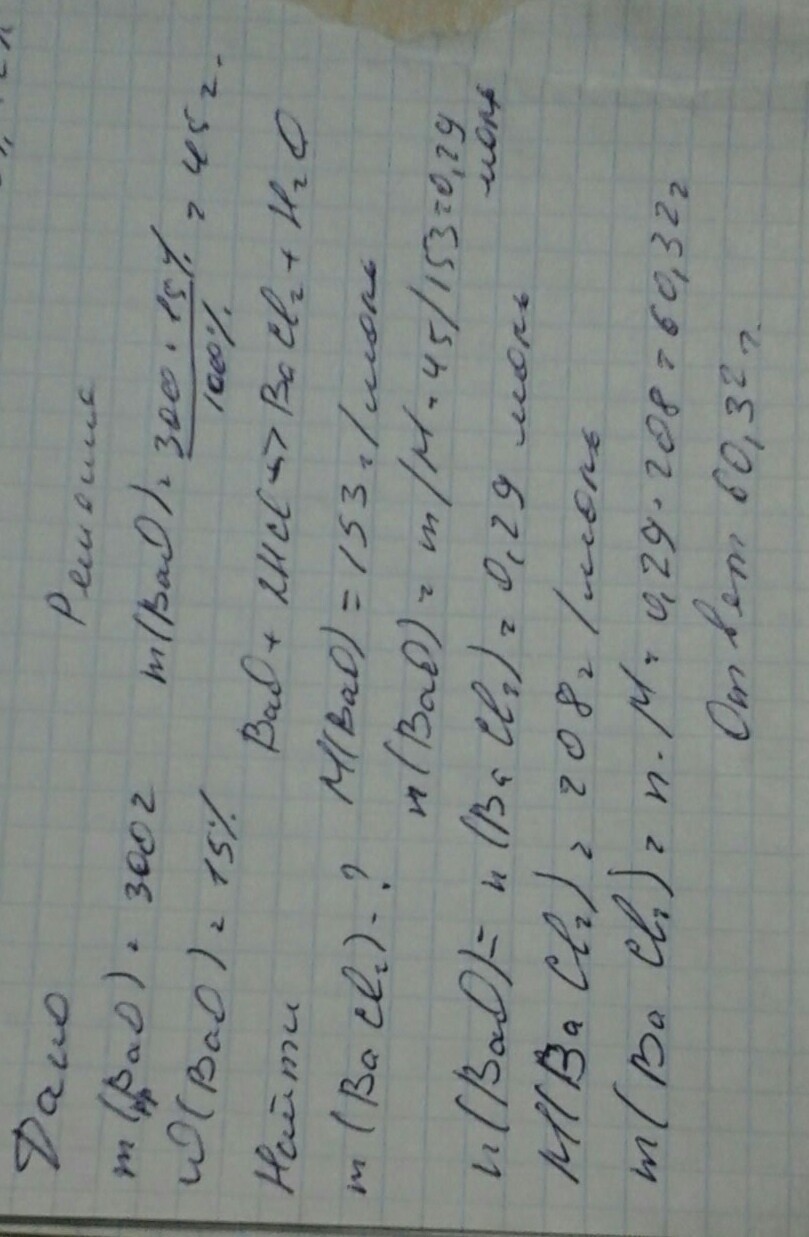 Дано
Решение
m(BaO) = 300г
m(BaO) = 300 · 15% / 100% = 45г.
W(BaO) = 15%
BaO + 2HCl → BaCl₂ + H₂O
Найти
M(BaO) = 153г/моль
m(BaCl₂) - ?
n(BaO) = m/M = 45/153 = 0,29 моль
n(BaO) = n(BaCl₂) = 0,29 моль
M(BaCl₂) = 208г/моль
m(BaCl₂) = n · M = 0,29 · 208 = 60,32г
Ответ 60,32г.